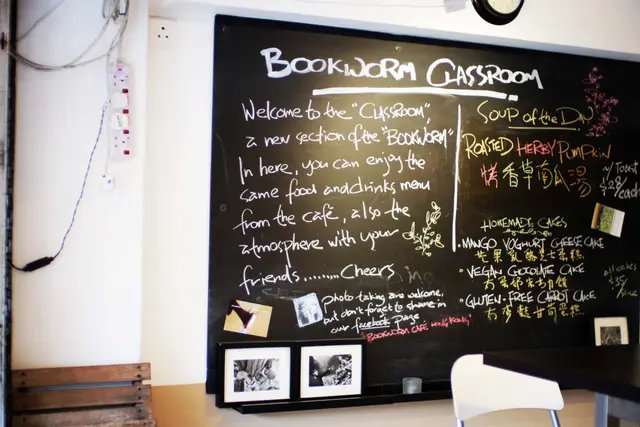 BOOKWORM CLASSROOM
Welcome to the "CLASSROOM",
a new section of the "BOOKWORM"
In here, you can enjoy the
same food and drinks menu
from the café, also the
atmosphere with your
friends.........Cheers
photo taking are welcome,
but don't forget to share in
our facebook page
"BOOKWORM CAFE HONG KONG"
SOUP of the DAY
ROASTED HERBY PUMPKIN
烤香草南瓜湯
w/ Toast
each
HOMEMADE CAKES
• MANGO YOGHURT CHEESE CAKE
芒果乳酪芝士蛋糕
• VEGAN CHOCOLATE CAKE
• GLUTEN-FREE CARROT CAKE
all cakes